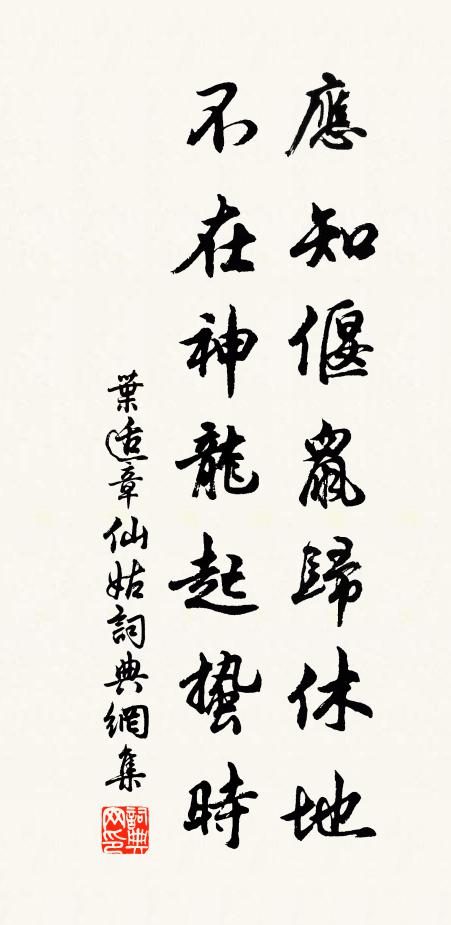 應知偃鼠歸休地
不在神龍起蟄時
葉適章仙姑詞典網集
詞典網印